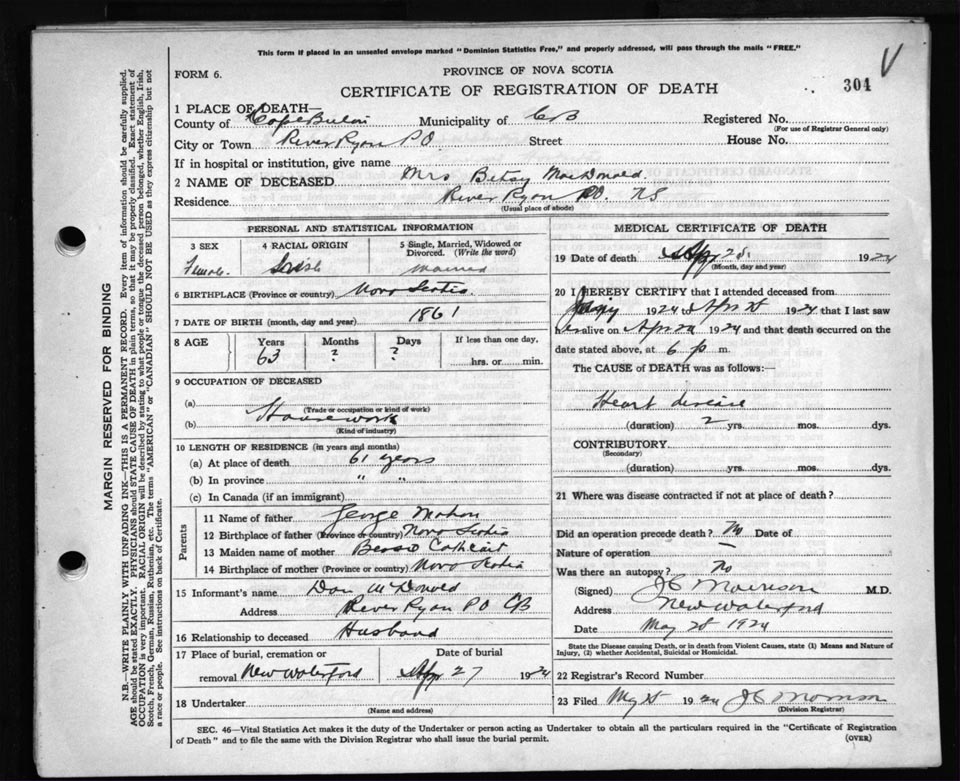 This form if placed in an unsealed envelope marked "Dominion Statistics Free," and properly addressed, will pass through the mails "FREE."
V
FORM 6.
PROVINCE OF NOVA SCOTIA
CERTIFICATE OF REGISTRATION OF DEATH
304
1 PLACE OF DEATH—
County of Cape Breton Municipality of CB Registered No.
(For use of Registrar General only)
City or Town River Ryan PO Street House No.
If in hospital or institution, give name
2 NAME OF DECEASED Mrs Betsy MacDonald
Residence River Ryan PO. NS
(Usual place of abode)
PERSONAL AND STATISTICAL INFORMATION
3 SEX 4 RACIAL ORIGIN 5 Single, Married, Widowed or Divorced. (Write the word)
Female. Irish married
6 BIRTHPLACE (Province or country) Nova Scotia.
7 DATE OF BIRTH (month, day and year) 1861
8 AGE Years Months Days If less than one day,
63 ? ? hrs. or min.
9 OCCUPATION OF DECEASED
(a)
(Trade or occupation or kind of work)
(b) Housework
(Kind of industry)
10 LENGTH OF RESIDENCE (in years and months)
(a) At place of death 61 years
(b) In province " "
(c) In Canada (if an immigrant)
Parents
11 Name of father George Mahon
12 Birthplace of father (Province or country) Nova Scotia
13 Maiden name of mother Cathcart
14 Birthplace of mother (Province or country) Nova Scotia
15 Informant's name Dan McDonald
Address River Ryan PO CB
16 Relationship to deceased Husband
17 Place of burial, cremation or removal New Waterford
Date of burial Apr 27 1924
18 Undertaker
(Name and address)
MEDICAL CERTIFICATE OF DEATH
19 Date of death Apr 25 1924
(Month, day and year)
20 I HEREBY CERTIFY that I attended deceased from
1924 Apr 25 1924 that I last saw
her alive on Apr 1924 and that death occurred on the
date stated above, at 6 p m.
The CAUSE of DEATH was as follows:—
Heart disease
(duration) 2 yrs. mos. dys.
CONTRIBUTORY
(Secondary)
(duration) yrs. mos. dys.
21 Where was disease contracted if not at place of death?
Did an operation precede death? No Date of
Nature of operation —
Was there an autopsy? No
(Signed) JC Morrison M.D.
Address New Waterford
Date May 28 1924
State the Disease causing Death, or in death from Violent Causes, state (1) Means and Nature of
Injury, (2) whether Accidental, Suicidal or Homicidal.
22 Registrar's Record Number
23 Filed 1924 JC Morrison
(Division Registrar)
SEC. 46—Vital Statistics Act makes it the duty of the Undertaker or person acting as Undertaker to obtain all the particulars required in the "Certificate of Registration
of Death" and to file the same with the Division Registrar who shall issue the burial permit.
(OVER)
MARGIN RESERVED FOR BINDING
N.B.—WRITE PLAINLY WITH UNFADING INK—THIS IS A PERMANENT RECORD. Every item of information should be carefully supplied.
AGE should be stated EXACTLY. PHYSICIANS should STATE CAUSE OF DEATH in plain terms, so that it may be properly classified. Exact statement of
OCCUPATION is very important. RACIAL ORIGIN will be described by stating to what people or tongue the deceased person belonged, whether English, Irish,
Scotch, French, German, Russian, Ruthenian, etc. The terms "AMERICAN" or "CANADIAN" SHOULD NOT BE USED as they express citizenship but not
a race or people. See instructions on back of Certificate.